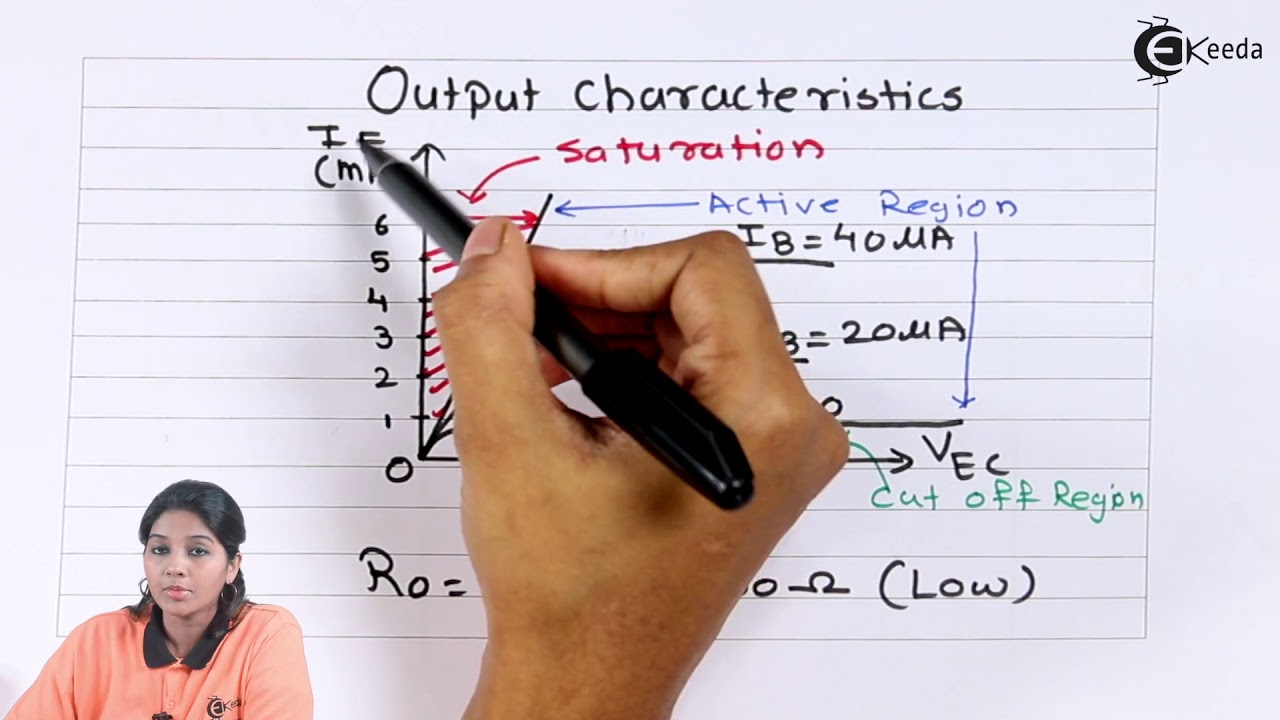 EKeeda
Output Characteristics
IE
(m
Saturation
Active Region
6
IB = 40 μA
5
4
3
B = 20 μA
2
1
0
VEC
0
Cut off Region
Ro = 0 Ω (Low)
EKeeda